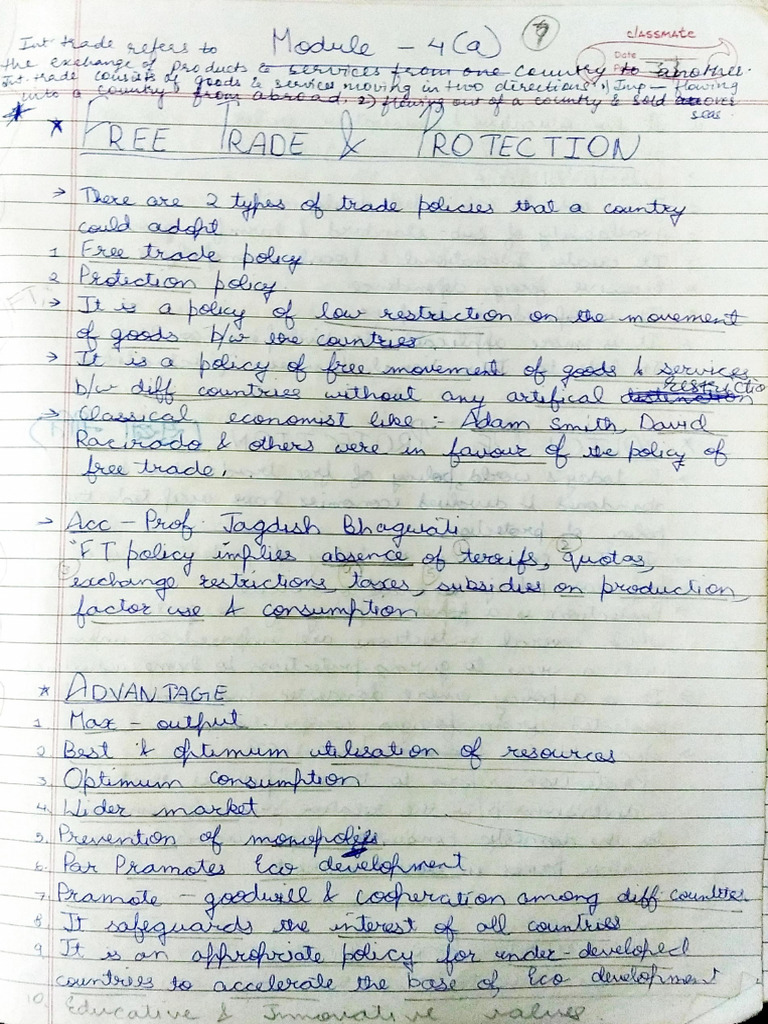 Module - 4(a)
9
classmate
Date
Int trade refers to
the exchange of products & services from one country to another.
Int. trade consists of goods & service moving in two directions 1) Imp - flowing
into a country from abroad, 2) flowing out of a country & sold over
seas
* FREE TRADE & PROTECTION
→ There are 2 types of trade policies that a country
could adopt
1 Free trade policy
2 Protection policy
FT:
→ It is a policy of low restriction on the movement
of goods b/w the countries.
→ It is a policy of free movement of goods & services
b/w diff countries without any artifical restrictio
→ Classical economist like:- Adam Smith, David
Racirado & others were in favour of the policy of
free trade.
→ Acc - Prof. Jagdish Bhagwati
"FT policy implies absence of terrifs, quotas,
exchange restrictions, taxes, subsidies on production,
factor use & consumption
* ADVANTAGE
1 Max - output
2 Best & optimum utilisation of resources
3. Optimum consumption
4. Wider market
5. Prevention of monopolies
6. Par Pramotes Eco development
7 Pramote - goodwill & cooperation among diff countries
8 It safeguards the interest of all countries
9 It is an appropriate policy for under-developed
countries to accelerate the base of Eco development
10 Educative & Innovative values.